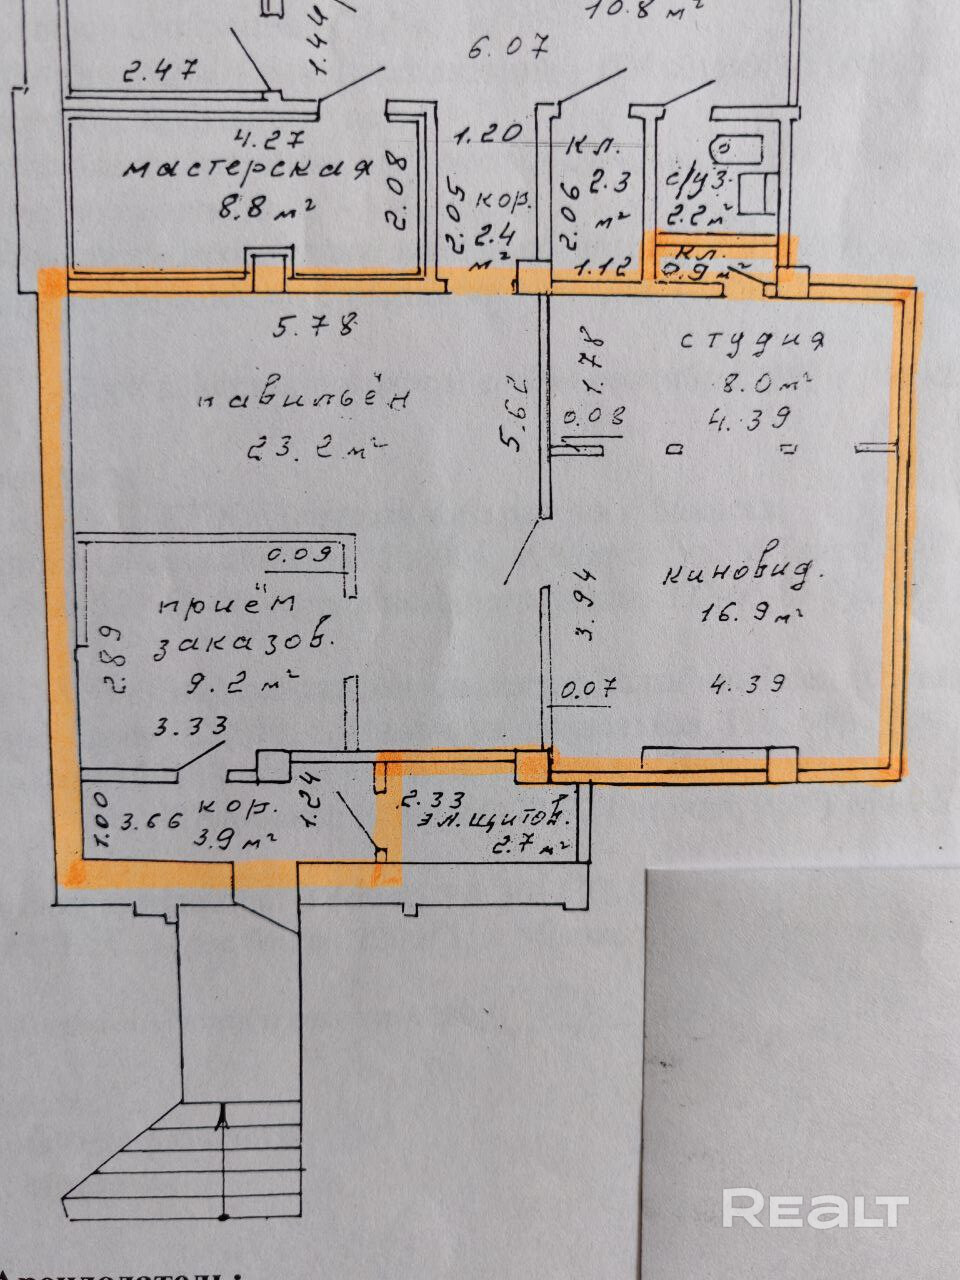 10.8 м²
1.44
6.07
2.47
4.27
мастерская
8.8 м²
2.08
1.20
2.05
кор.
2.4
м²
кл.
2.3
м²
2.06
1.12
с/уз.
2.2 м²
кл.
0.9 м²
5.78
павильён
23.2 м²
5.62
1.78
0.08
студия
8.0 м²
4.39
0.09
приём
заказов.
9.2 м²
2.89
3.33
3.94
киновид.
16.9 м²
4.39
0.07
1.00
3.66
кор.
3.9 м²
1.24
2.33
эл.щитов.
2.7 м²
REALT
Арендодатель: